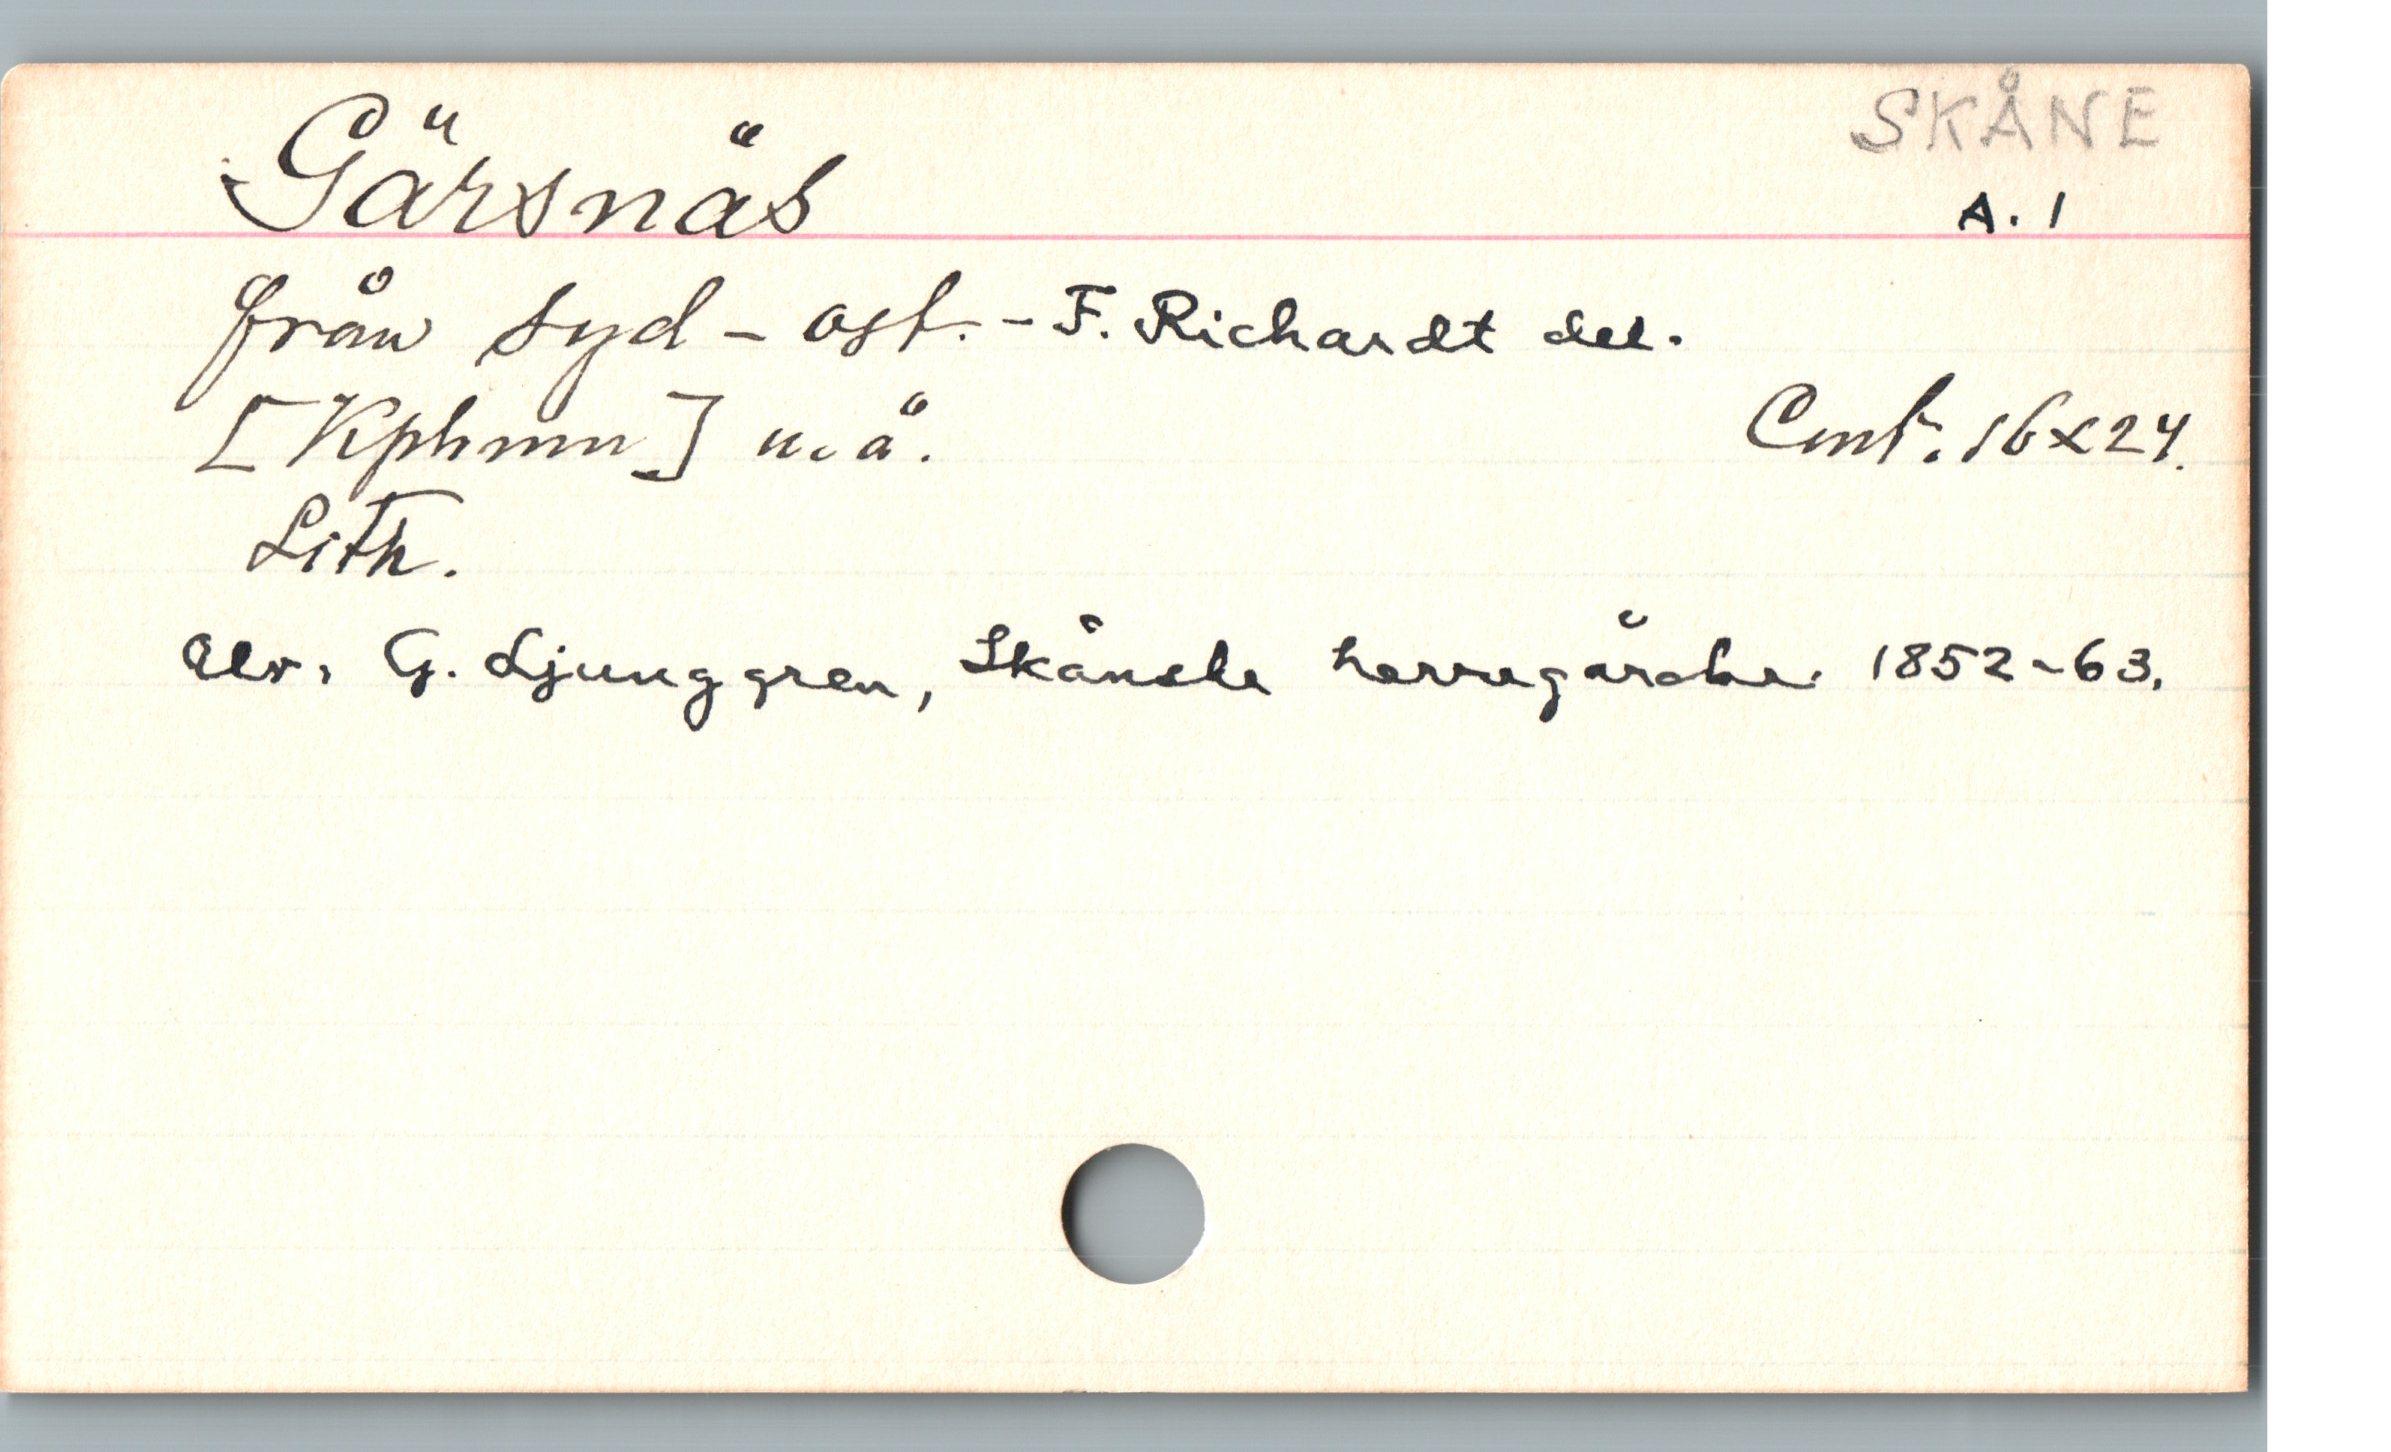 SKÅNE
Gärsnäs
A. 1
från syd-ost. - F. Richardt del.
[Kphmn] u. å.
Cmt. 16x24.
Lith.
Ur: G. Ljunggren, Skånska herregårdar 1852-63.